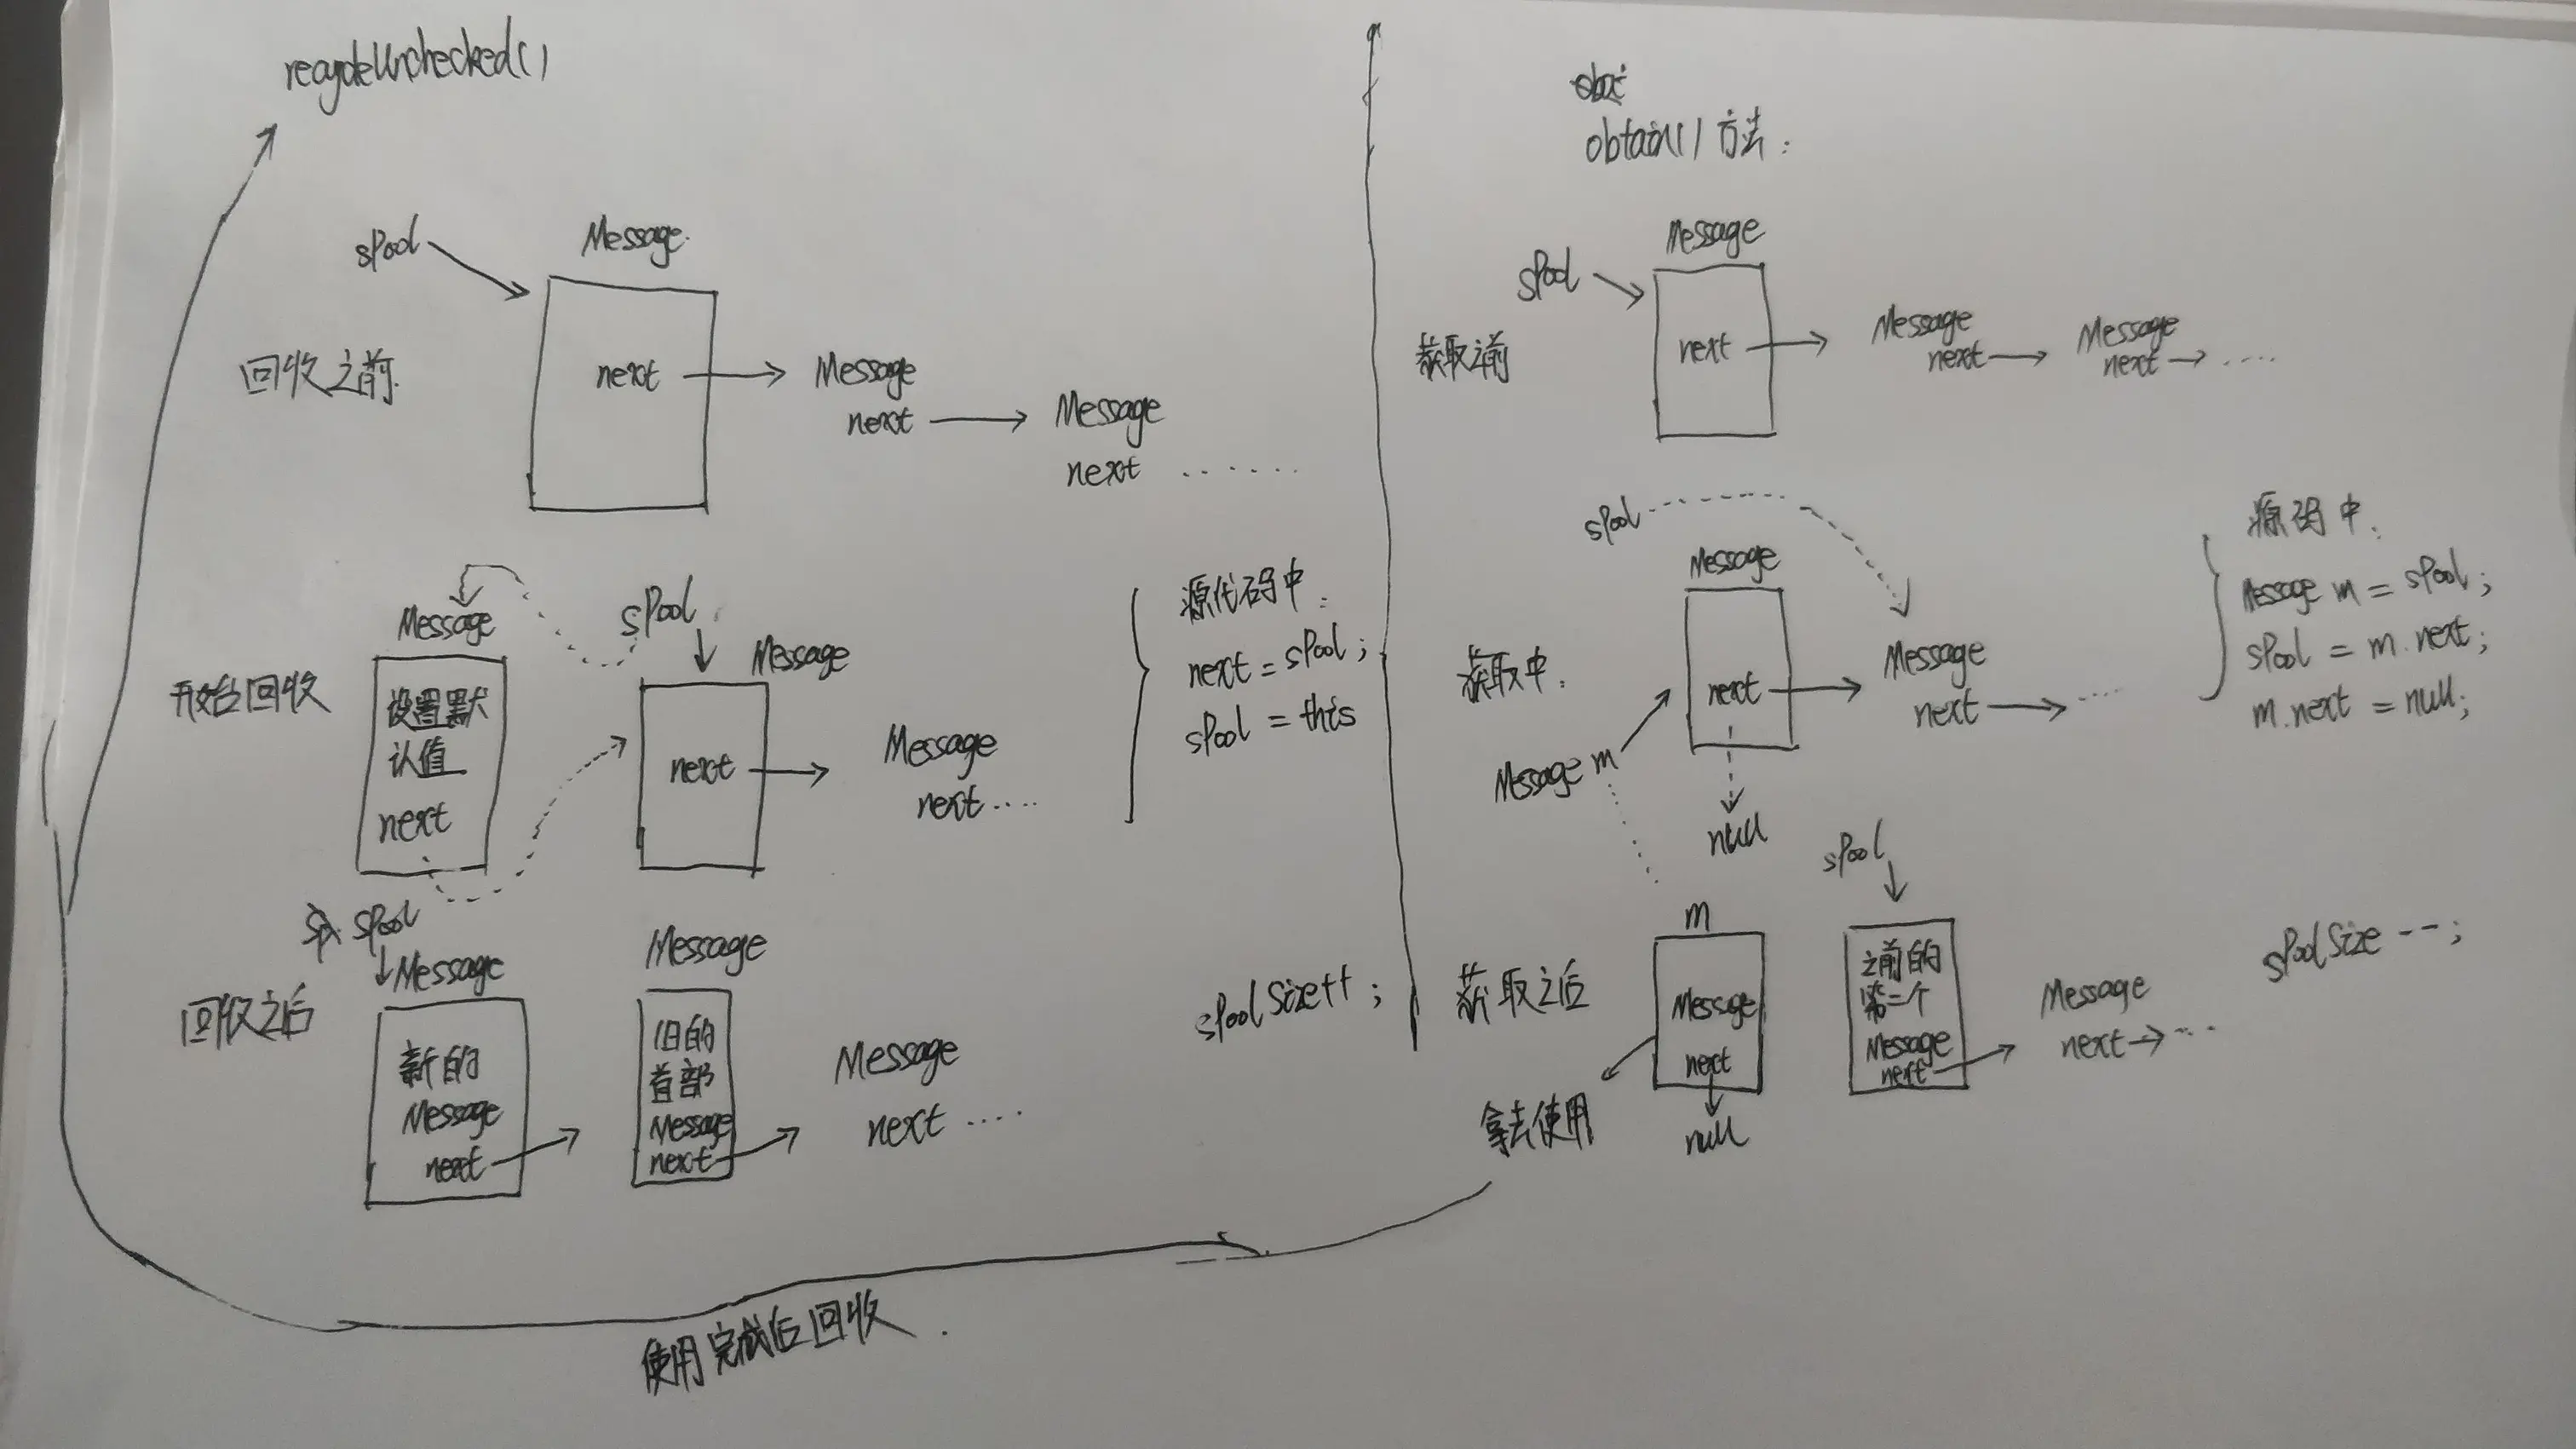 recycleUnchecked()
sPool
Message.
回收之前.
next
Message
next
Message
next ......
开始回收
Message
设置默
认值
next
sPool
Message
next
Message
next ....
源代码中:
next = sPool;
sPool = this
sPool
Message
回收之后
新的
Message
next
Message
旧的
首部
Message
next
Message
next ....
sPoolSize++;
使用完成后回收.
obtain()方法:
sPool
Message
获取之前
next
Message
next
Message
next ....
sPool
Message
获取中:
next
Message m
null
Message
next ....
源码中:
Message m = sPool;
sPool = m.next;
m.next = null;
获取之后
m
Message
next
null
拿去使用
sPool
之前的
第二个
Message
next
Message
next ...
sPoolSize--;